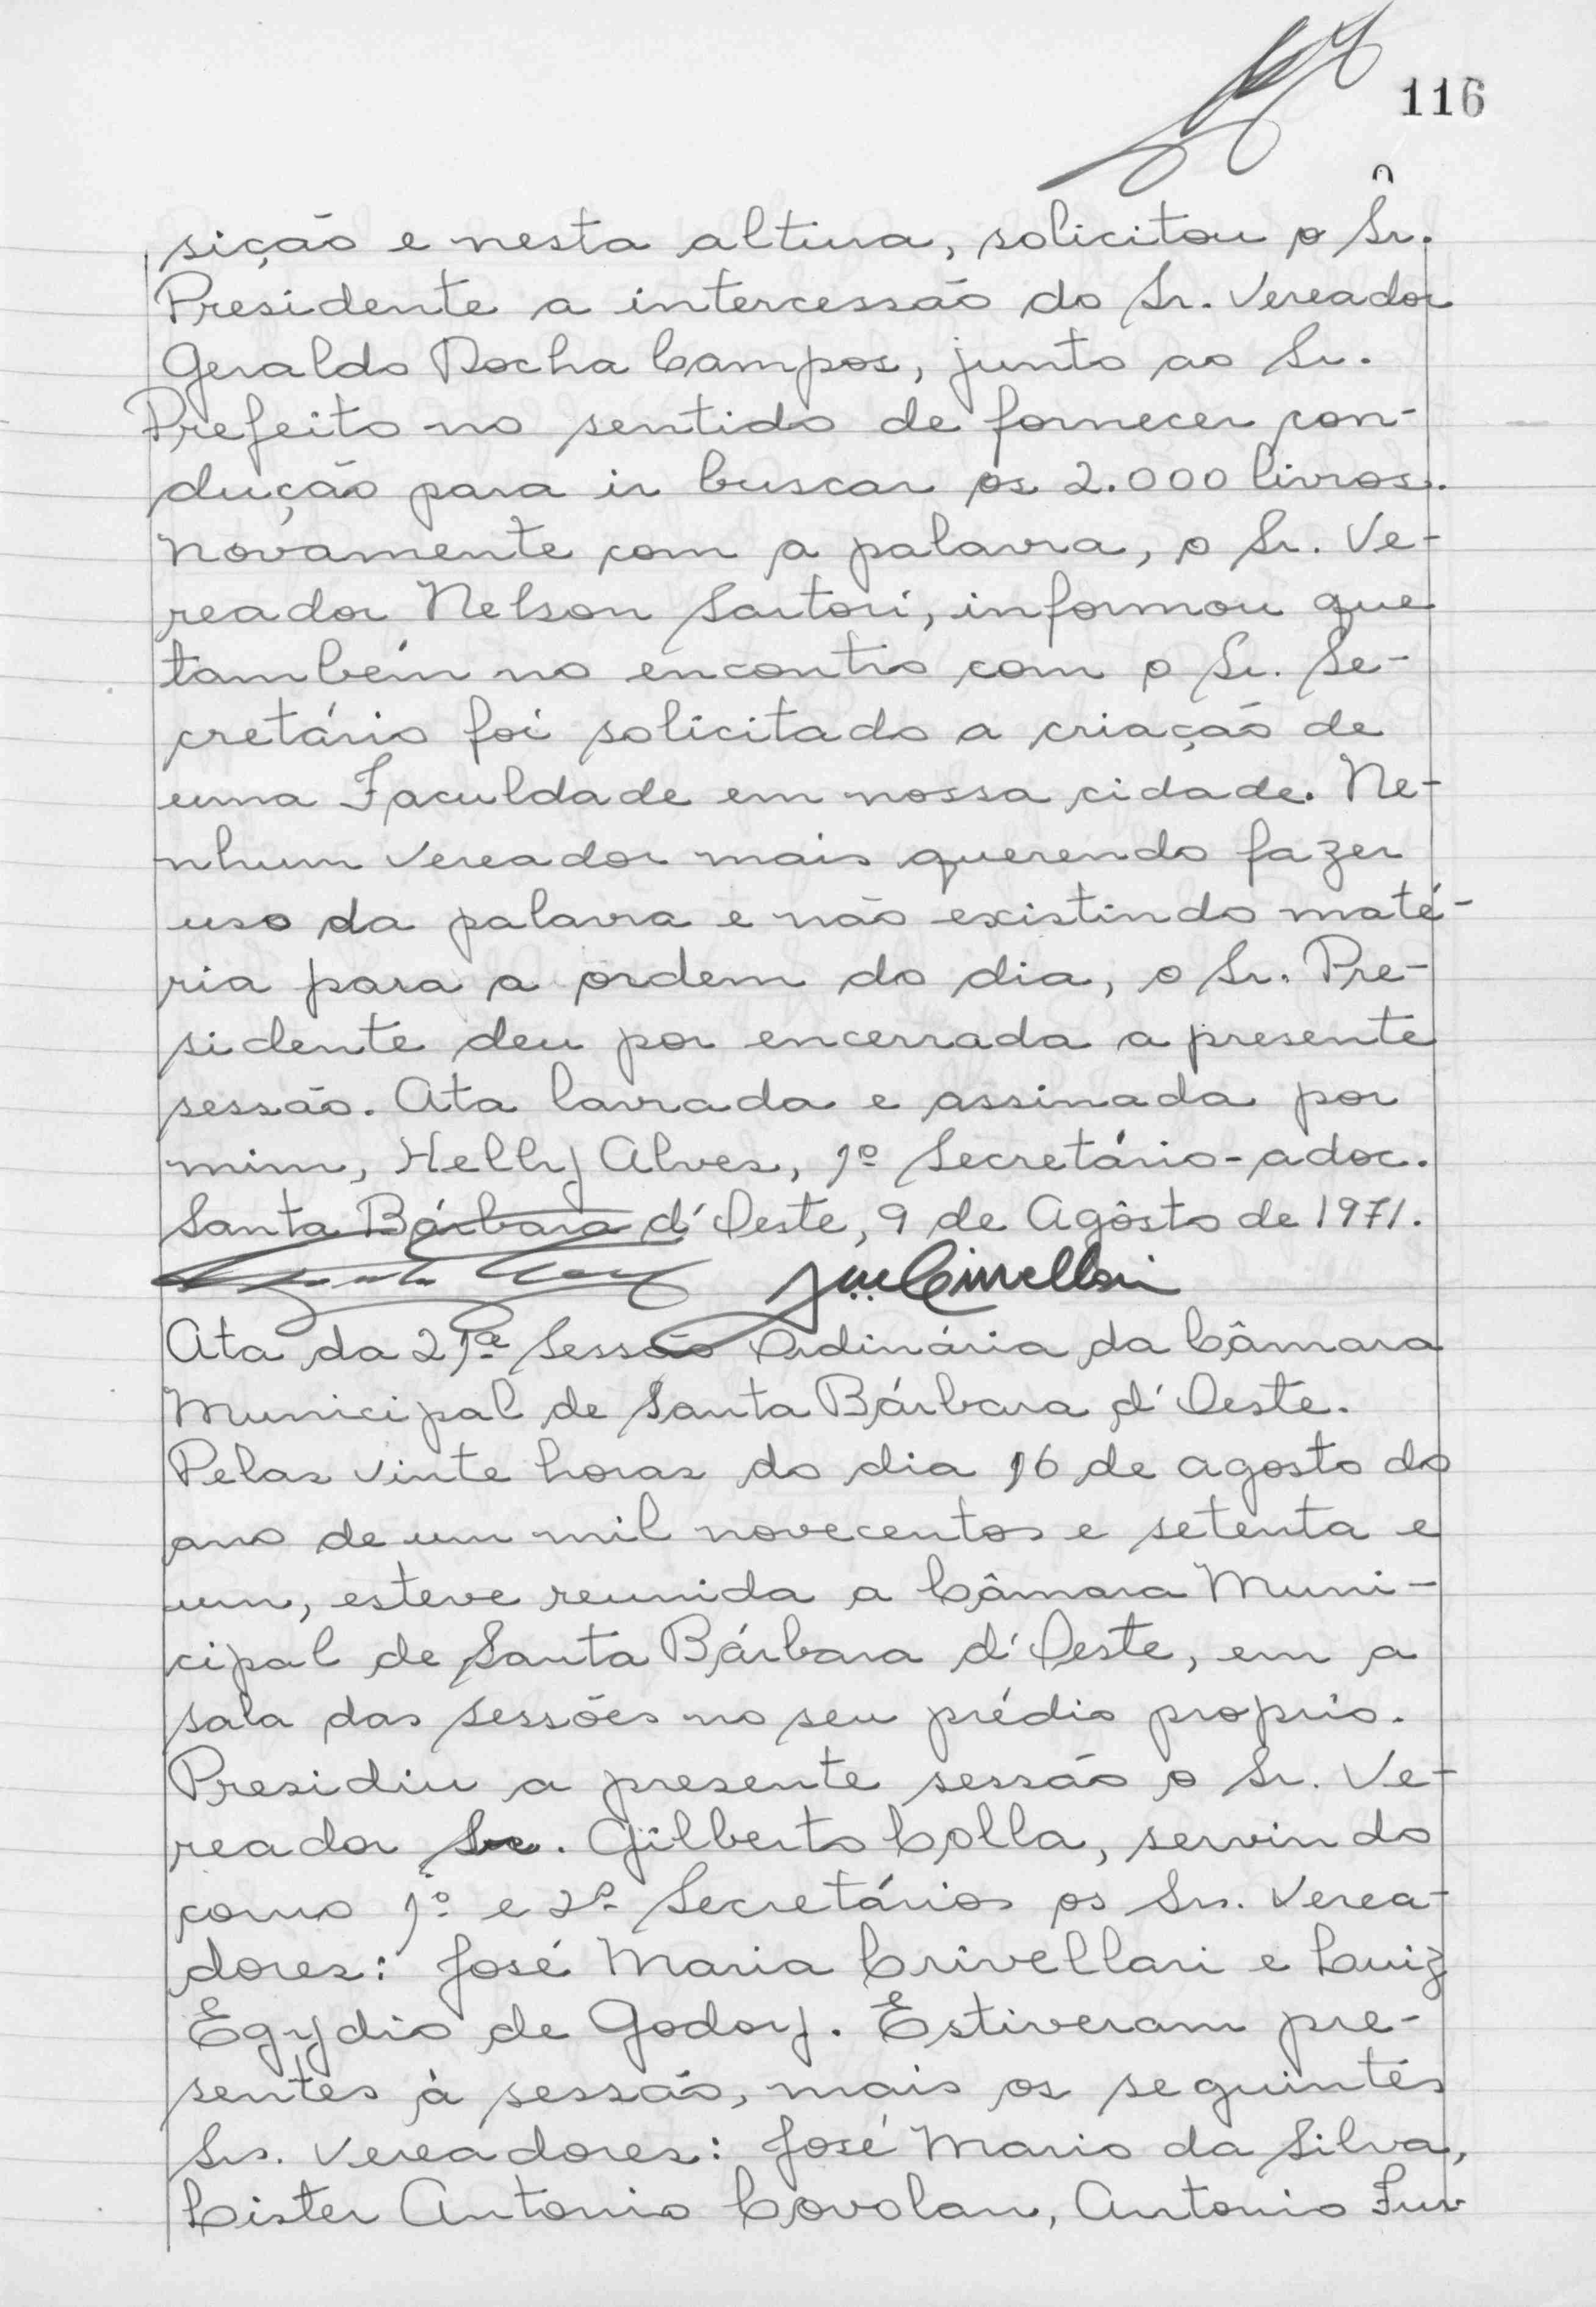 116
sição e nesta altura, solicitou o Sr.
Presidente a intercessão do Sr. Vereador
Geraldo Rocha Campos, junto ao Sr.
Prefeito no sentido de fornecer con-
dução para ir buscar os 2.000 livros.
Novamente com a palavra, o Sr. Ve-
reador Nelson Sartori, informou que
também no encontro com o Sr. Se-
cretário foi solicitado a criação de
uma Faculdade em nossa cidade. Ne-
nhum vereador mais querendo fazer
uso da palavra e não existindo maté-
ria para a ordem do dia, o Sr. Pre-
sidente deu por encerrada a presente
sessão. Ata lavrada e assinada por
mim, Helly Alves, 1º Secretário-adoc.
Santa Bárbara d'Oeste, 9 de Agôsto de 1971.
Ata da 21ª Sessão Ordinária da Câmara
Municipal de Santa Bárbara d'Oeste.
Pelas vinte horas do dia 16 de agosto do
ano de um mil novecentos e setenta e
um, esteve reunida a Câmara Muni-
cipal de Santa Bárbara d'Oeste, em a
sala das sessões no seu prédio proprio.
Presidiu a presente sessão o Sr. Ve-
reador Sr. Gilberto Colla, servindo
como 1º e 2º Secretários os Srs. Verea-
dores: José Maria Crivellari e Luiz
Egydio de Godoy. Estiveram pre-
sentes à sessão, mais os seguintes
Srs. Vereadores: José Mario da Silva,
Lister Antonio Covolan, Antonio Fur